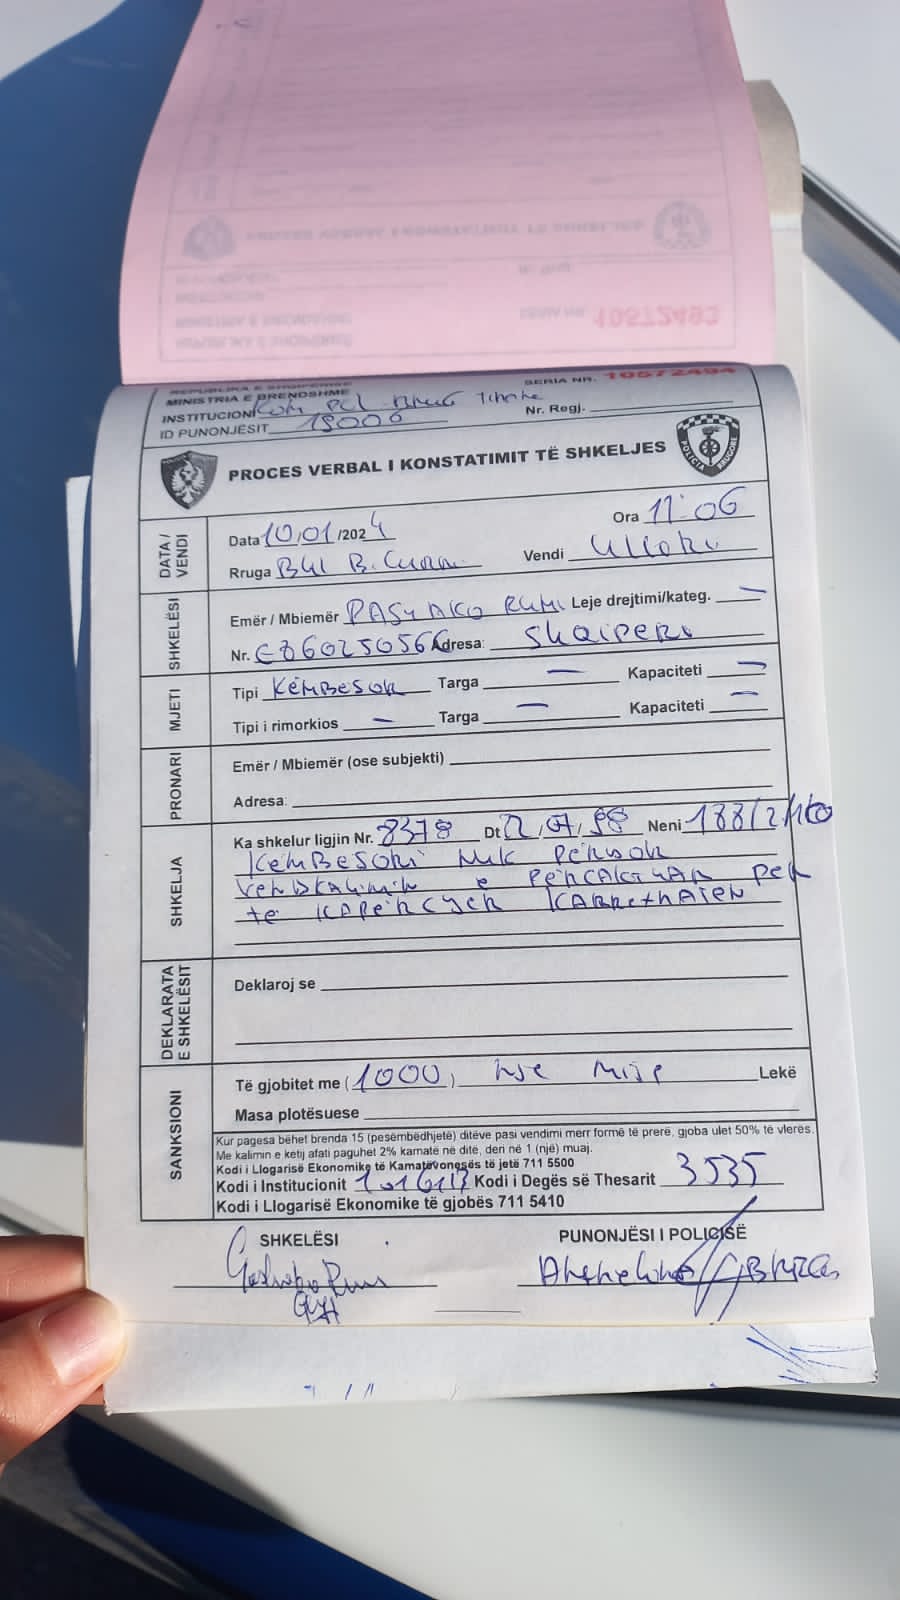 10572493
REPUBLIKA E SHQIPËRISË
SERIA NR. 10572494
MINISTRIA E BRENDSHME
INSTITUCIONI Kom Pol Tirane
Nr. Regj.
ID PUNONJËSIT 15006
PROCES VERBAL I KONSTATIMIT TË SHKELJES
POLICIA RRUGORE
DATA / VENDI
Data 10/01/2024 Ora 11:06
Rruga Bul B. Curri Vendi
SHKELËSI
Emër / Mbiemër PASHAKO RUMI Leje drejtimi/kateg. —
Nr. Adresa: Shqiperi
MJETI
Tipi KËMBESOR Targa — Kapaciteti —
Tipi i rimorkios — Targa — Kapaciteti —
PRONARI
Emër / Mbiemër (ose subjekti)
Adresa:
SHKELJA
Ka shkelur ligjin Nr. 8378 Dt 22/07/98 Neni 188/2
KËMBESORI NUK PËRDOR
VENDKALIMIN E PËRCAKTUAR PËR
TË KAPËRCYER KARREXHATEN
DEKLARATA E SHKELËSIT
Deklaroj se
SANKSIONI
Të gjobitet me (1000) nje mije Lekë
Masa plotësuese
Kur pagesa bëhet brenda 15 (pesëmbëdhjetë) ditëve pasi vendimi merr formë të prerë, gjoba ulet 50% të vlerës.
Me kalimin e këtij afati paguhet 2% kamatë në ditë, deri në 1 (një) muaj.
Kodi i Llogarisë Ekonomike të Kamatëvonesës të jetë 711 5500
Kodi i Institucionit 1016117 Kodi i Degës së Thesarit 3535
Kodi i Llogarisë Ekonomike të gjobës 711 5410
SHKELËSI PUNONJËSI I POLICISË